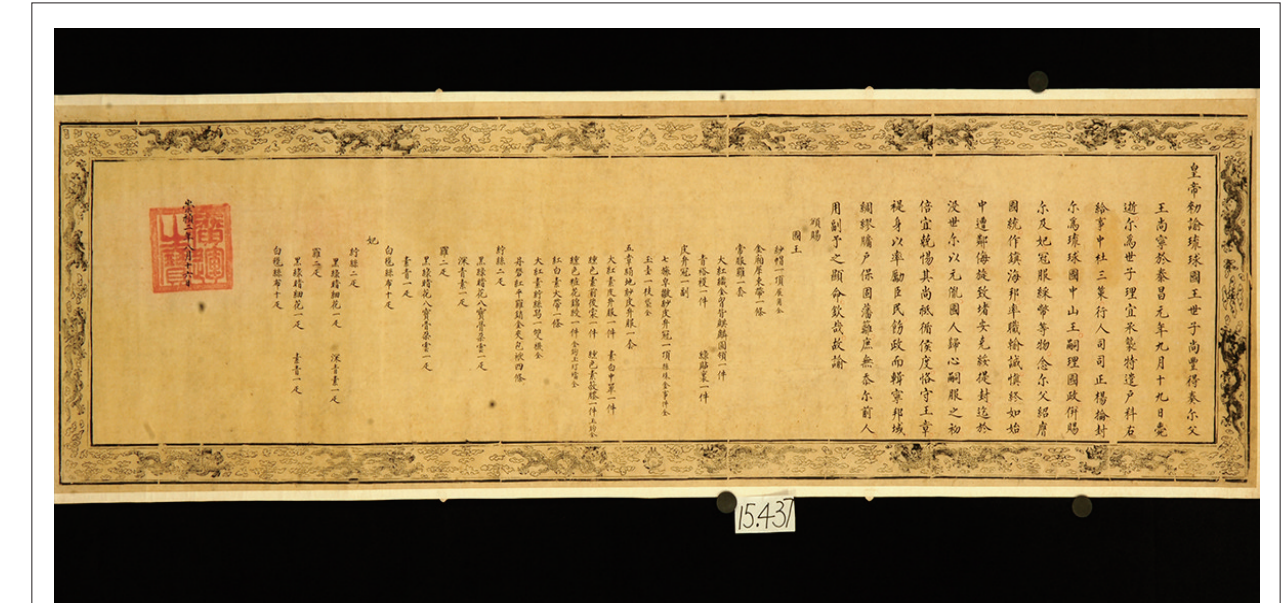 皇帝勑諭琉球國王世子尚豐得奏尔父
王尚寧於泰昌元年九月十九日薨
逝尔為世子理宜承襲特遣戶科右
給事中杜三策行人司司正楊掄封
尔為琉球國中山王嗣理國政併賜
尔及妃冠服綵幣等物念尔父紹膺
國統作鎮海邦率職輸誠慎終如始
中遭鄰侮旋致堵安克綏提封迄於
沒世尔以元胤國人歸心嗣服之初
倍宜兢惕其尚祇循侯度恪守王章
禔身以率勵臣民飭政而輯寧邦域
綢繆牖戶保固藩籬庶無忝尔前人
用副予之顯命欽哉故諭
頒賜
國王
紗帽一頂展角全
金廂犀束帶一條
常服羅一套
大紅織金胷背麒麟圓領一件
青褡𧞤一件 綠貼裏一件
皮弁冠一副
七旒皁皺紗皮弁冠一頂旒珠金事件全
玉圭一枝袋全
五章絹地紗皮弁服一套
大紅素皮弁服一件 素白中單一件
纁色素前後裳一件 纁色素蔽膝一件玉鈎全
纁色粧花錦綬一件金鈎玉玎璫全
紅白素大帶一條
大紅素紵絲舄一雙襪全
丹礬紅平羅銷金夾包袱四條
紵絲二疋
黑綠暗花八寶骨朵雲一疋
深青素一疋
羅二疋
黑綠暗花八寶骨朵雲一疋
素青一疋
白氁絲布十疋
妃
紵絲二疋
黑綠暗細花一疋 深青素一疋
羅二疋
黑綠暗細花一疋 素青一疋
白氁絲布十疋
崇禎二年八月十六日
廣運之寶
15.437